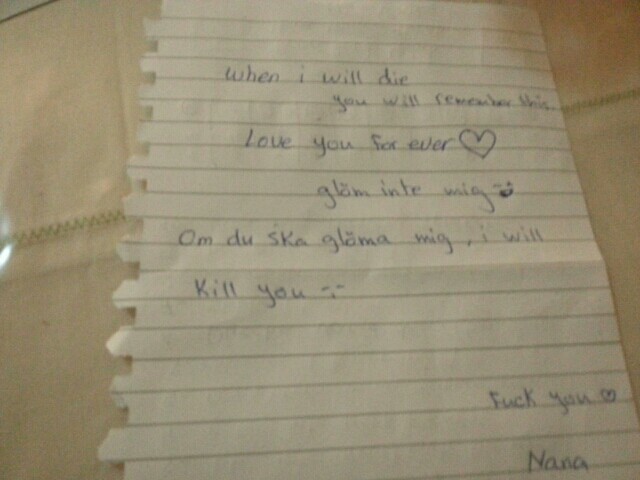 when i will die
you will remember this.
Love you for ever ♡
glöm inte mig :)
Om du ska glöma mig, i will
Kill you -.-
Fuck you ♡
Nana